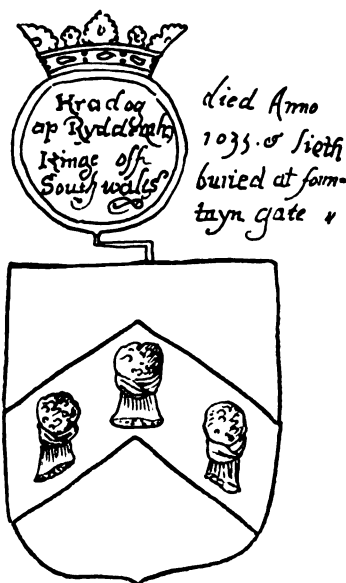 Kradog
ap Ryddrrch
Kinge off
South wales
died Anno
1035. & lieth
buried at foun=
tayn gate "